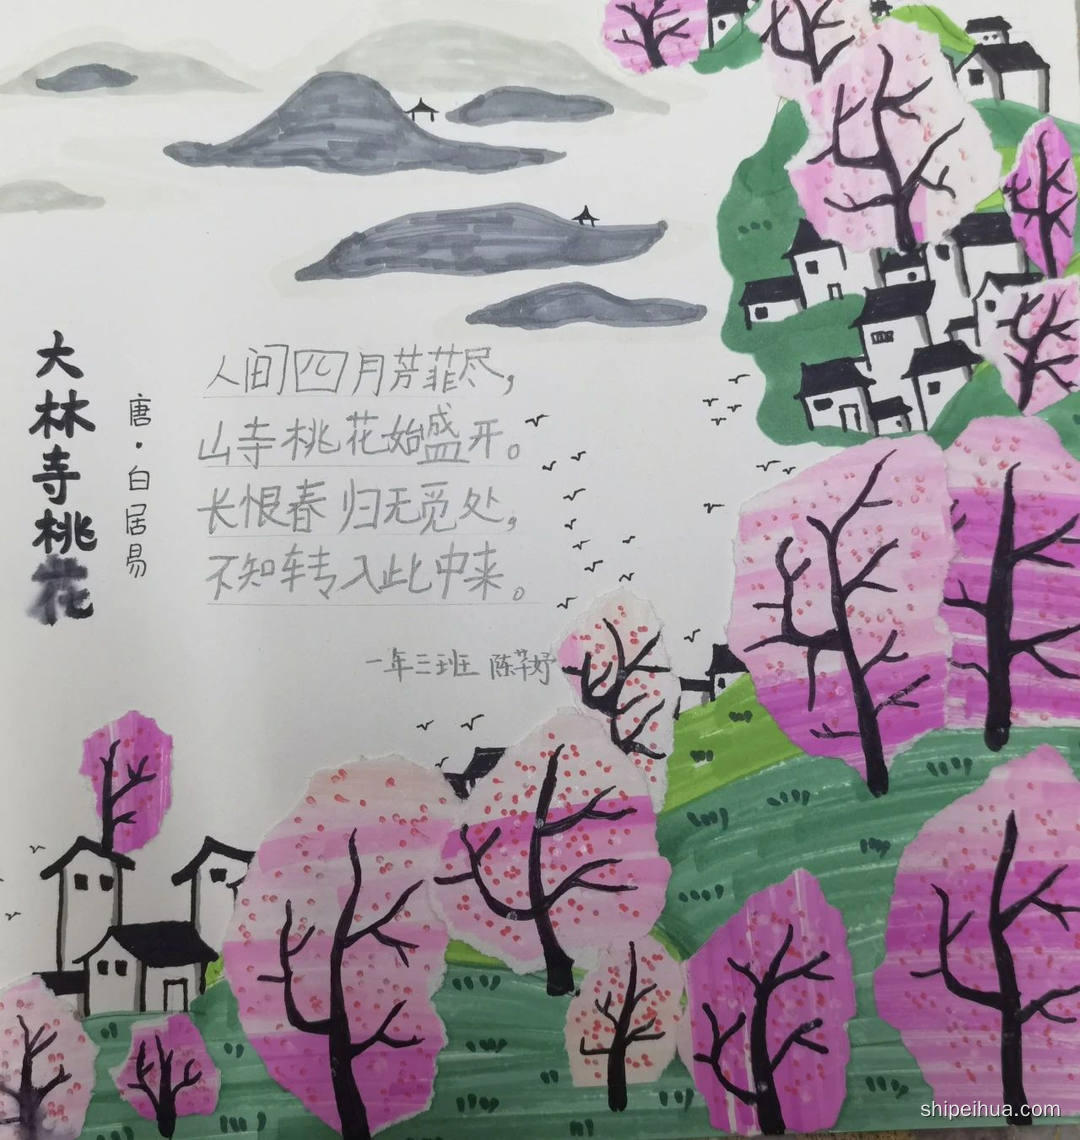 大林寺桃花
唐·白居易
人间四月芳菲尽，
山寺桃花始盛开。
长恨春归无觅处，
不知转入此中来。
一年三班 陈芊妤
shipeihua.com